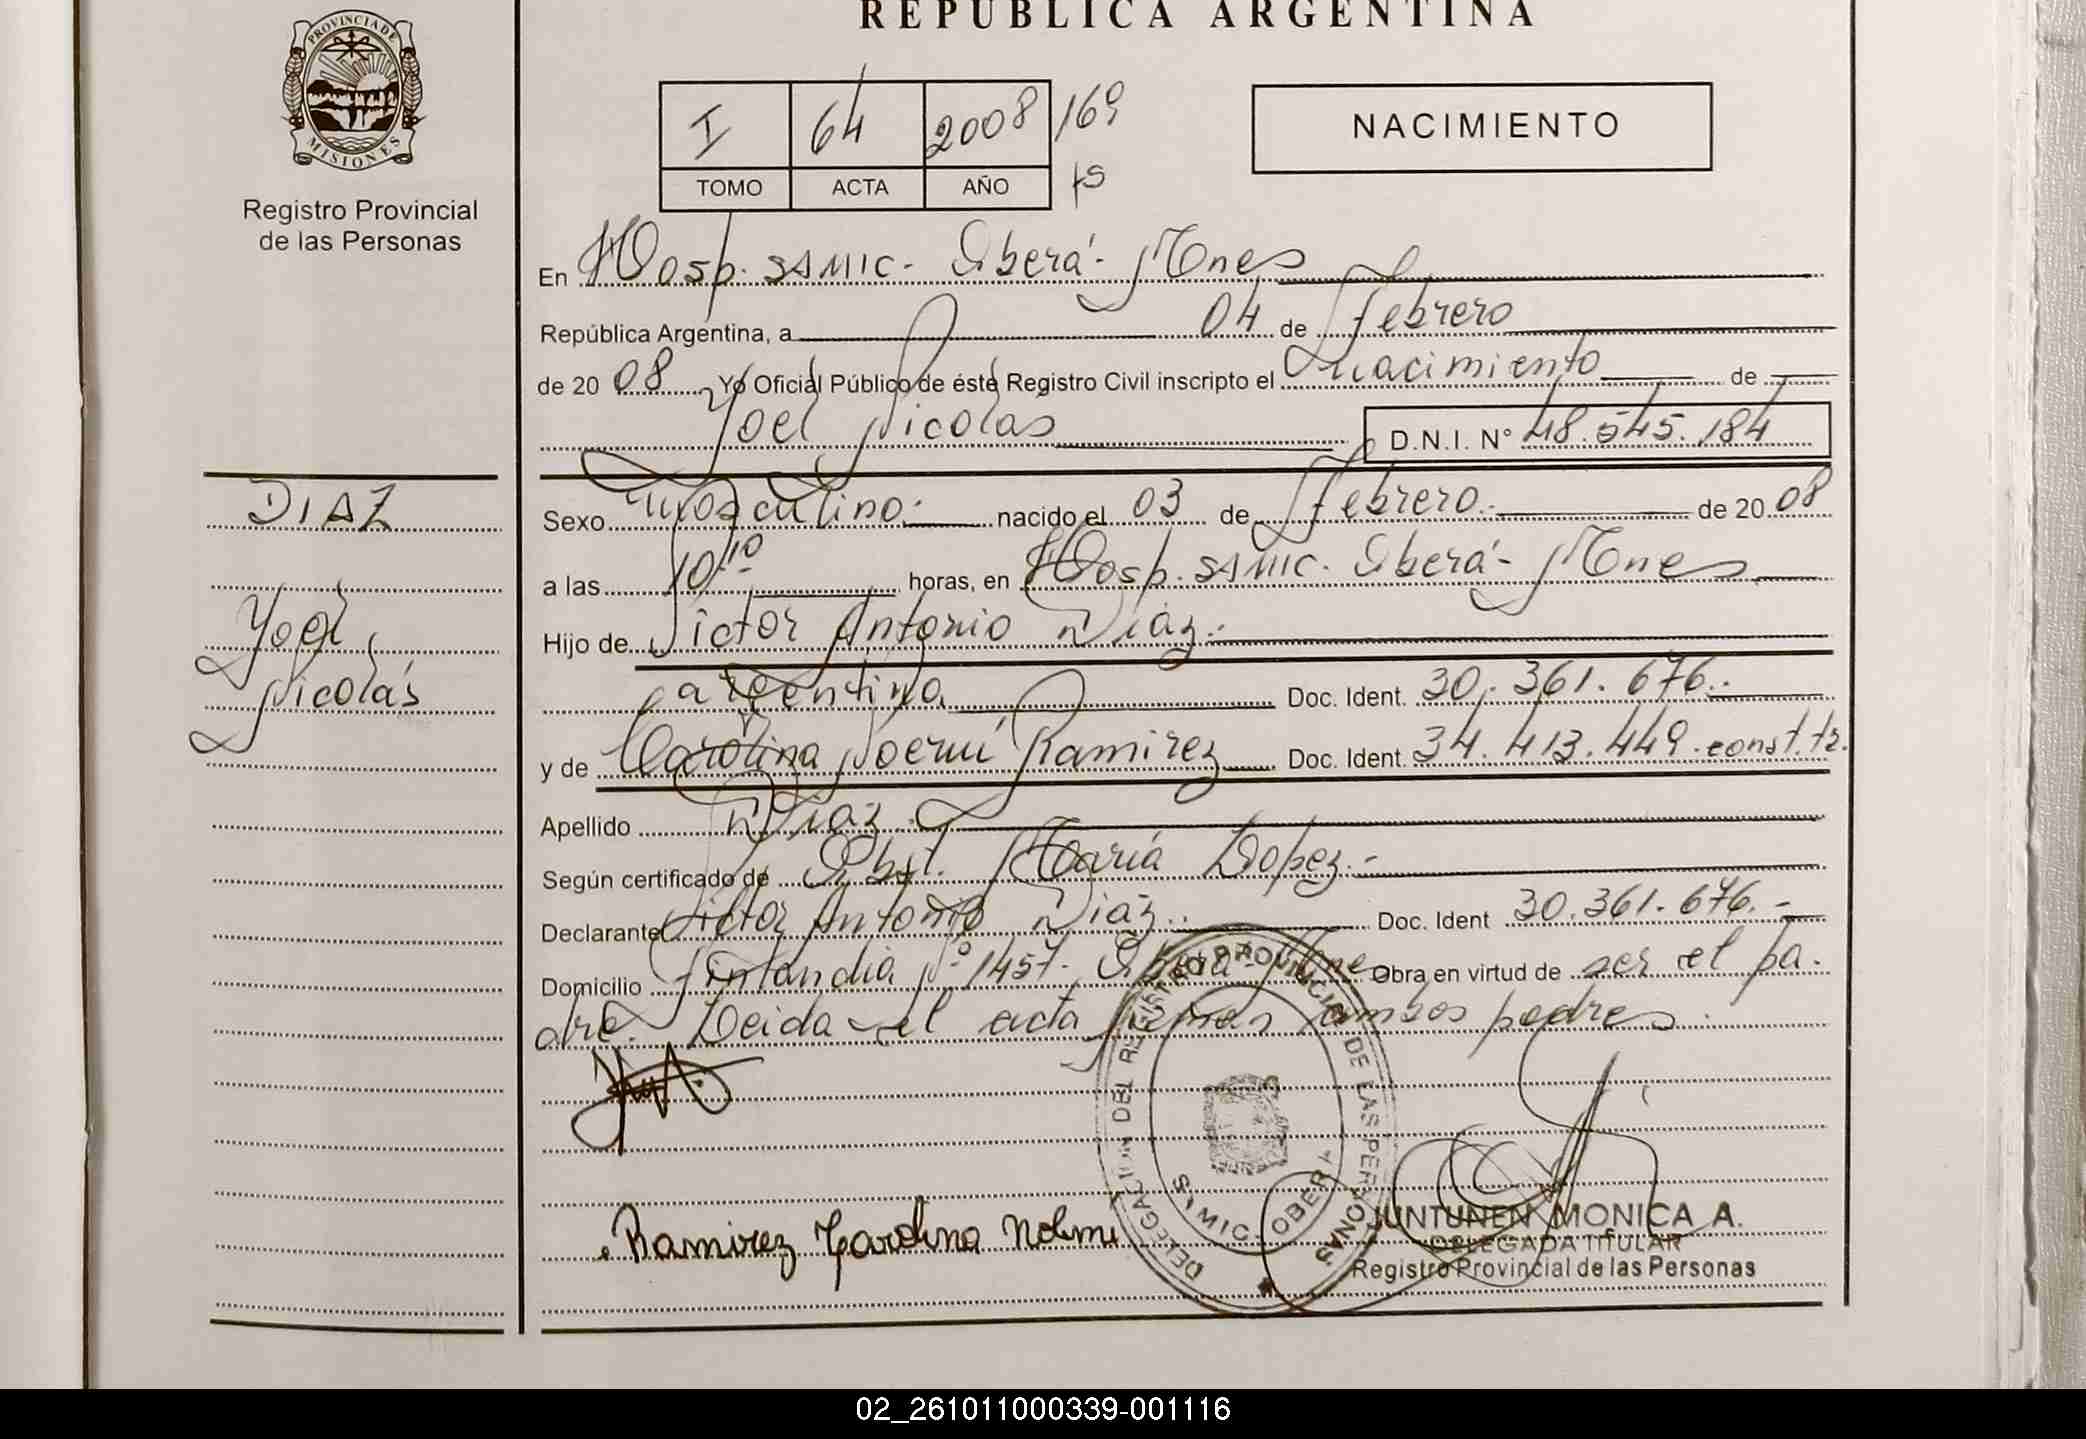 PROVINCIA DE
MISIONES
Registro Provincial
de las Personas
DIAZ
Yoel
Nicolás
REPUBLICA ARGENTINA
I 64 2008 169
TOMO ACTA AÑO fs
NACIMIENTO
En Hosp. SAMIC - Oberá - Mnes
República Argentina, a 04 de Febrero
de 20 08 Yo Oficial Público de éste Registro Civil inscripto el Nacimiento de
Yoel Nicolás D.N.I. N° 48.545.184
Sexo Masculino.- nacido el 03 de Febrero.- de 20 08
a las 10:10 horas, en Hosp. SAMIC - Oberá - Mnes
Hijo de Victor Antonio Diaz.-
argentina Doc. Ident. 30.361.676.-
y de Carolina Noemí Ramirez Doc. Ident. 34.413.449.const.tz.
Apellido Diaz.-
Según certificado de Obst. María Lopez.-
Declarante Victor Antonio Diaz.. Doc. Ident 30.361.676.-
Domicilio Finlandia N° 1457. Oberá - Mnes Obra en virtud de ser el pa-
dre. Leida el acta firman ambos padres
Ramirez Carolina Nohemi
DELEGACION DEL REGISTRO PROVINCIAL DE LAS PERSONAS
SAMIC - OBERA
JUNTUNEN MONICA A.
DELEGADA TITULAR
Registro Provincial de las Personas
02_261011000339-001116